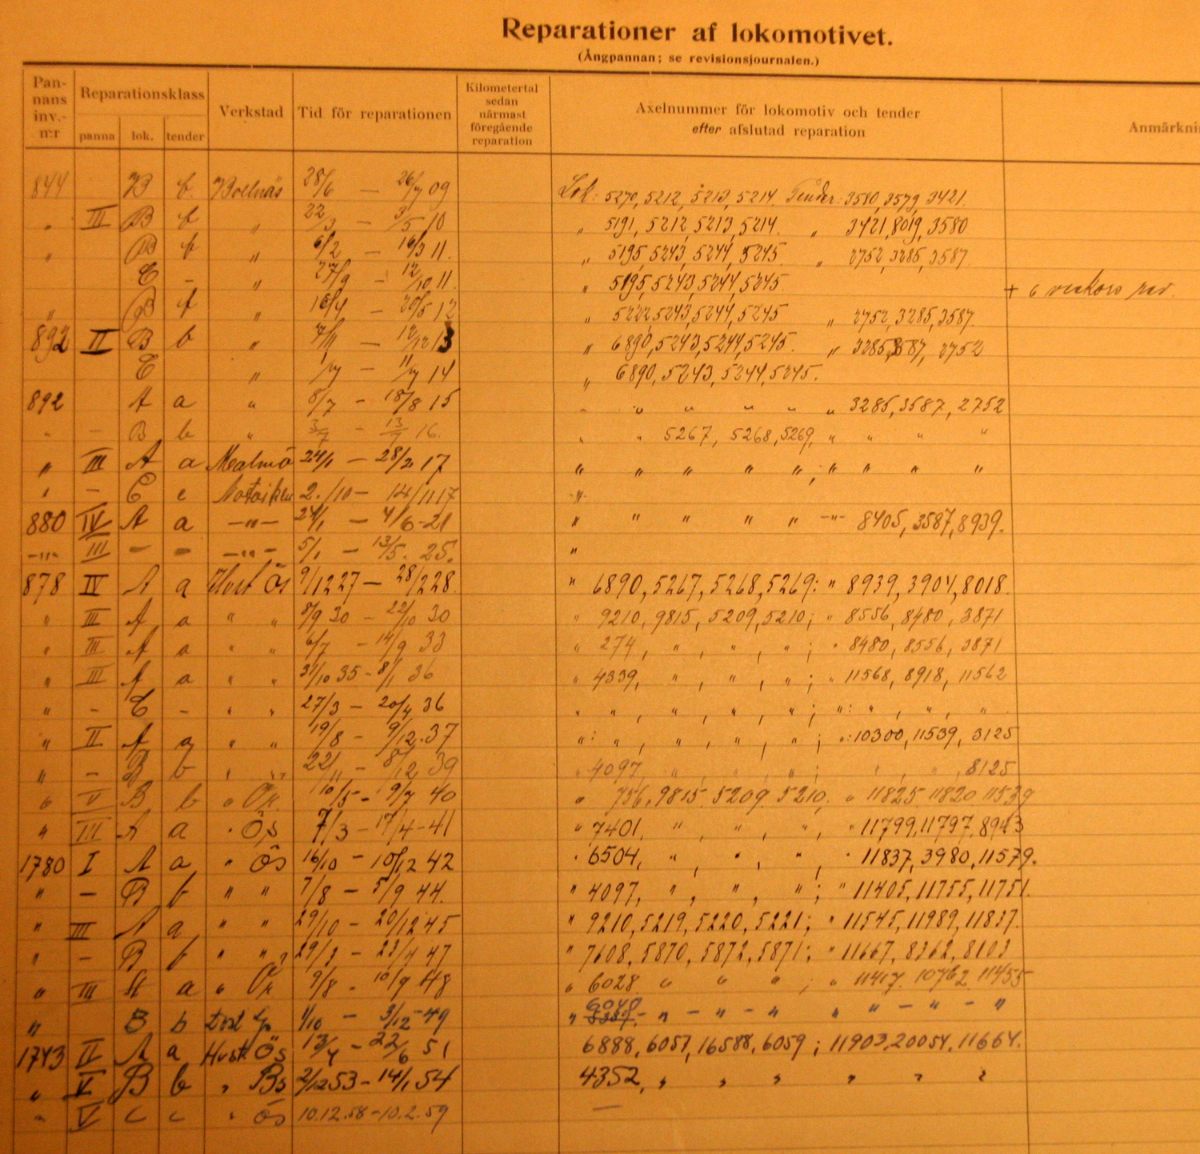 Reparationer af lokomotivet.
(Ångpannan; se revisionsjournalen.)
Pannans inv.-n:r Reparationsklass panna lok. tender Verkstad Tid för reparationen Kilometertal sedan närmast föregående reparation Axelnummer för lokomotiv och tender efter afslutad reparation Anmärkni
844 B b Bollnäs 28/6 — 26/7 09 Lok: 5270, 5212, 5213, 5214 Tender: 3580, 3579, 3421.
" III B b " 22/3 — 3/5 10 " 5191, 5212, 5213, 5214. " 3421, 8019, 3580
" B b " 6/2 — 16/3 11. " 5195, 5243, 5244, 5245. " 2752, 3285, 3587
C - " 27/9 - 12/10 11. " 5195, 5243, 5244, 5245 +
" B b " 16/4 — 20/5 12 " 5222, 5243, 5244, 5245 " 2752, 3285, 3587.
892 II B b " 7/11 — 12/12 13 " 6890, 5243, 5244, 5245. " 3285, 3587, 2752
C " 1/7 — 11/7 14 " 6890, 5243, 5244, 5245.
892 A a " 8/7 — 18/8 15 " " " " " " 3285, 3587, 2752
" - B b " 3/7 - 13/7 16. " " 5267, 5268, 5269, " " " "
" III A a Malmö 24/1 — 28/2 17 " " " " " ; " " " "
" - C c 2./10 — 14/11 17 "
880 IV A a —"— 24/1 — 4/6 - 21 " " " " " —"— 8405, 3587, 8939.
—"— III — — —"— 5/1 — 13/5. 25. "
878 II A a Hvst Ös 9/12 27 — 28/2 28. " 6890, 5267, 5268, 5269: " 8939, 3904, 8018.
" III A a " " 8/9 30 — 22/10 30 " 9210, 9815, 5209, 5210; " 8556, 8480, 3871
" III A a " " 6/7 — 14/9 33 " 274, " , " , " ; " 8480, 8556, 3871
" III A a " " 31/10 35 - 8/1 36 " 4339, " , " , " ; " 11568, 8918, 11562
" - C - " " 27/3 — 20/4 36 " " , " , " , " ; " : " , " , "
" II A a " " 19/8 — 9/12 - 37 " : " , " , " , " ; " : 10300, 11539, 3125
" - B b " " 22/11 — 8/12 39 " 4097, " , " , " ; " " , " , 8125
" V B b " Ör 16/5 — 9/7 40 " 756, 9815, 5209, 5210. " 11825 11820 11539
" III A a " Ös 7/3 — 17/4 - 41 " 7401, " , " , " , " 11799, 11797, 8943
1780 I A a " Ös 16/10 — 10/12 42 " 6504, " , " , " , " 11837, 3980, 11579.
" - B b " " 7/8 — 5/9 44. " 4097, " , " , " ; " 11405, 11755, 11751.
" III A a " " 29/10 — 20/12 45 " 9210, 5219, 5220, 5221; " 11545, 11989, 11837.
" - B b " " 29/3 — 23/4 47 " 7608, 5870, 5872, 5871; " 11667, 8362, 8103
" III A a " Ör 9/8 — 10/9 48 " 6028 " " " ; " 11417. 10762. 11455
" B b 1/10 — 3/12 - 49 " 6048 - " - " - " " " - " - "
1743 II A a Hvst Ös 13/4 — 22/6 51 6888, 6057, 16588, 6059; 11903, 20054, 11664.
" V B b " Bs 2/12 53 — 14/1 54 4352, " , " " " "
" V c c " Ös 10.12.58 — 10.2.59 —